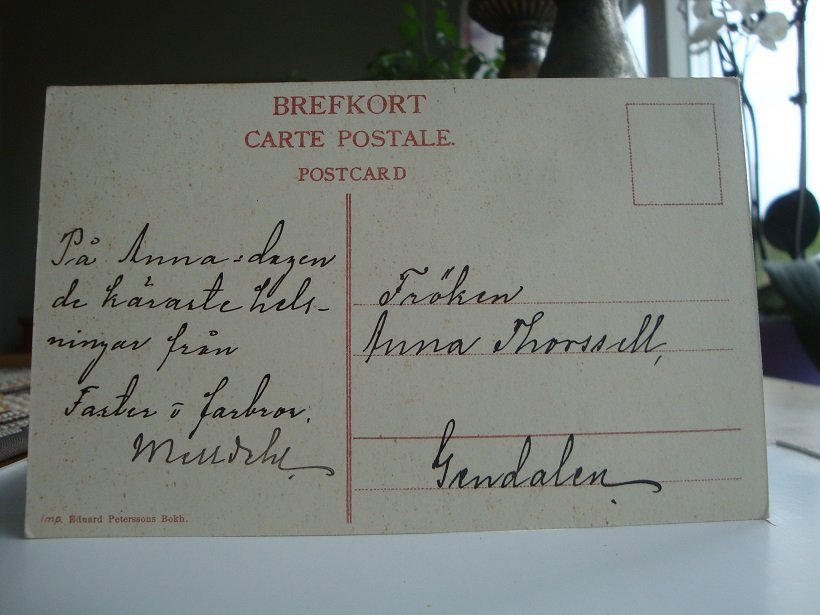 BREFKORT
CARTE POSTALE.
POSTCARD
På Anna-dagen
de käraste hels-
ningar från
Faster o farbror.
Fröken
Anna Thorssell,
Gendalen
imp. Eduard Peterssons Bokh.